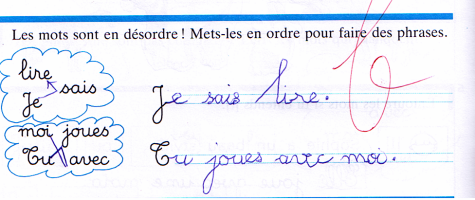 Les mots sont en désordre ! Mets-les en ordre pour faire des phrases.
lire
sais
Je
Je sais lire.
moi joues
Tu avec
Tu joues avec moi.